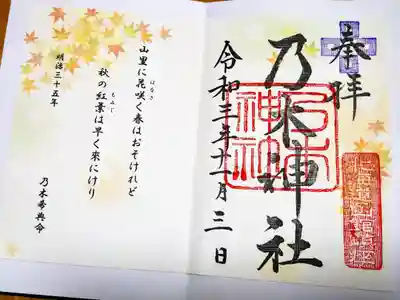 奉拝
乃木神社
令和三年十一月三日
山里に花咲く春はおそけれど
秋の紅葉は早く來にけり
明治三十五年
乃木希典命